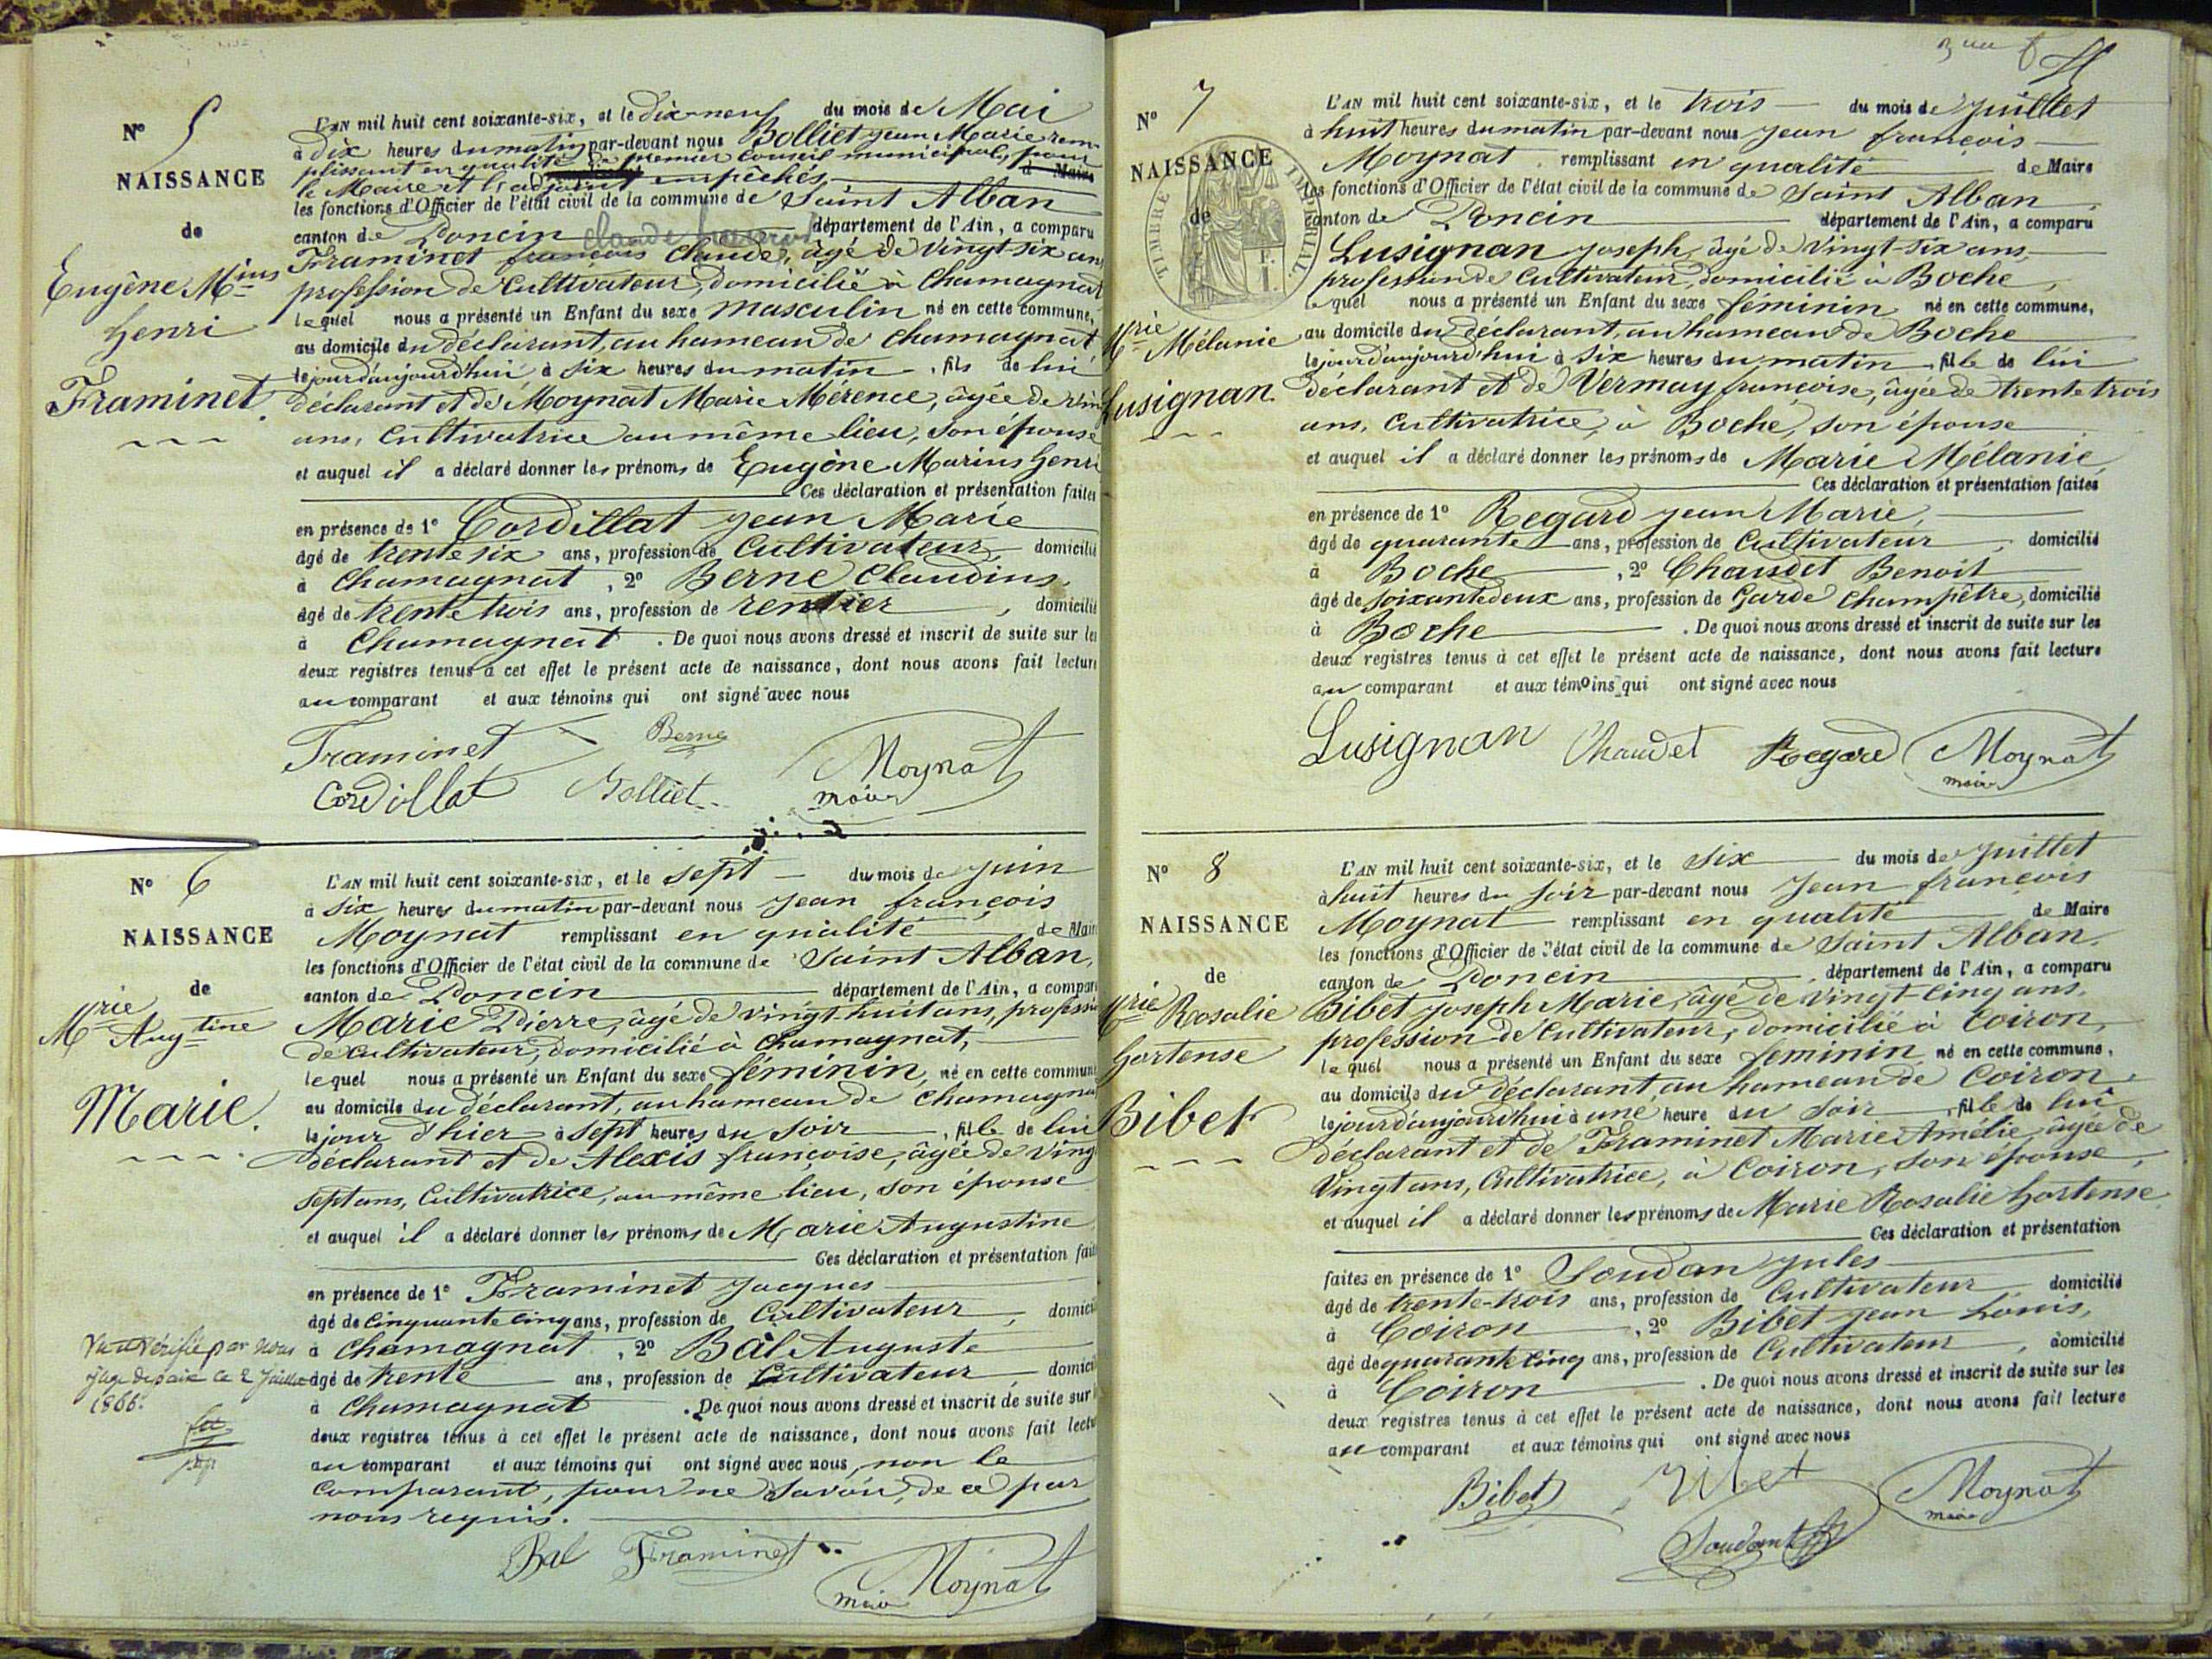 N° 5
NAISSANCE
de
Eugène M.ius
henri
Framinet.
L'AN mil huit cent soixante-six, et le Dix-neuf du mois de Mai
à Dix heures du matin par-devant nous Bolliet jean Marie rem-
plissant en qualité de premier Conseil municipal, pour
le Maire et l'adjoint empêchés
les fonctions d'Officier de l'état civil de la commune de Saint Alban
canton de Poncin département de l'Ain, a comparu
claude françois
Framinet françois Claude, âgé de Vingt-six ans
profession de Cultivateur, domicilié à Chamagnat
lequel nous a présenté un Enfant du sexe masculin né en cette commune,
au domicile du déclarant, au hameau de Chamagnat
le jour d'aujourd'hui à six heures du matin, fils de lui
déclarant et de Moynat Marie Mérence, âgée de vin
ans, Cultivatrice au même lieu, son épouse
et auquel il a déclaré donner les prénoms de Eugène Marius henri
Ces déclaration et présentation faites
en présence de 1° Cordillat jean Marie
âgé de trente six ans, profession de Cultivateur, domicilié
à Chamagnat, 2° Berne Claudius,
âgé de trente trois ans, profession de rentier, domicilié
à Chamagnat. De quoi nous avons dressé et inscrit de suite sur les
deux registres tenus à cet effet le présent acte de naissance, dont nous avons fait lecture
au comparant et aux témoins qui ont signé avec nous
Framinet Berne
Cordillat Bolliet Moynat
maire
N° 6
NAISSANCE
de
M.rie Aug.tine
Marie.
L'AN mil huit cent soixante-six, et le sept du mois de juin
à six heures du matin par-devant nous jean françois
Moynat remplissant en qualité de Maire
les fonctions d'Officier de l'état civil de la commune de Saint Alban,
canton de Poncin département de l'Ain, a comparu
Marie Pierre, âgé de vingt-huit ans, profession
de cultivateur, domicilié à Chamagnat,
lequel nous a présenté un Enfant du sexe féminin, né en cette commune
au domicile du déclarant, au hameau de Chamagnat
le jour d'hier à sept heures du soir, fille de lui
déclarant et de Alexis françoise, âgée de Ving
sept ans, Cultivatrice, au même lieu, son épouse
et auquel il a déclaré donner les prénoms de Marie Augustine
Ces déclaration et présentation faites
en présence de 1° Framinet Jacques
âgé de Cinquante cinq ans, profession de Cultivateur, domicilié
à Chamagnat, 2° Bal Auguste
âgé de trente ans, profession de Cultivateur domicilié
à Chamagnat. De quoi nous avons dressé et inscrit de suite sur
deux registres tenus à cet effet le présent acte de naissance, dont nous avons fait lecture
au comparant et aux témoins qui ont signé avec nous, non le
Comparant, pour ne savoir, de ce par
nous requis.
Vu et vérifié par nous
juge de paix ce 2 juillet
1866.
Bal Framinet
Moynat
maire
N° 7
NAISSANCE
de
M.rie Mélanie
Lusignan.
TIMBRE IMPERIAL
L'AN mil huit cent soixante-six, et le trois du mois de juillet
à huit heures du matin par-devant nous jean françois
Moynat remplissant en qualité de Maire
les fonctions d'Officier de l'état civil de la commune de Saint Alban
canton de Poncin département de l'Ain, a comparu
Lusignan joseph, âgé de Vingt-six ans,
profession de Cultivateur, domicilié à Boche,
lequel nous a présenté un Enfant du sexe féminin né en cette commune,
au domicile du déclarant, au hameau de Boche
le jour d'aujourd'hui à six heures du matin, fille de lui
déclarant et de Vermay françoise, âgée de trente trois
ans, Cultivatrice, à Boche, son épouse
et auquel il a déclaré donner les prénoms de Marie Mélanie,
Ces déclaration et présentation faites
en présence de 1° Regard jean Marie,
âgé de quarante ans, profession de Cultivateur, domicilié
à Boche, 2° Chaudet Benoit
âgé de soixante deux ans, profession de Garde Champêtre, domicilié
à Boche. De quoi nous avons dressé et inscrit de suite sur les
deux registres tenus à cet effet le présent acte de naissance, dont nous avons fait lecture
au comparant et aux témoins qui ont signé avec nous
Lusignan Chaudet Regard Moynat
maire
N° 8
NAISSANCE
de
M.rie Rosalie
hortense
Bibet
L'AN mil huit cent soixante-six, et le six du mois de juillet
à huit heures du soir par-devant nous jean françois
Moynat remplissant en qualité de Maire
les fonctions d'Officier de l'état civil de la commune de Saint Alban,
canton de Poncin, département de l'Ain, a comparu
Bibet joseph Marie, âgé de vingt-cinq ans,
profession de Cultivateur, domicilié à Coiron,
lequel nous a présenté un Enfant du sexe féminin né en cette commune,
au domicile du déclarant, au hameau de Coiron,
le jour d'aujourd'hui à une heure du soir, fille de lui
déclarant et de Framinet Marie Amélie, âgée de
Vingt ans, Cultivatrice, à Coiron, son épouse,
et auquel il a déclaré donner les prénoms de Marie Rosalie hortense
Ces déclaration et présentation
faites en présence de 1° Soudan jules
âgé de trente-trois ans, profession de Cultivateur domicilié
à Coiron, 2° Bibet jean Louis,
âgé de quarante cinq ans, profession de Cultivateur, domicilié
à Coiron. De quoi nous avons dressé et inscrit de suite sur les
deux registres tenus à cet effet le présent acte de naissance, dont nous avons fait lecture
au comparant et aux témoins qui ont signé avec nous
Bibet Bibet Moynat
maire
Soudant